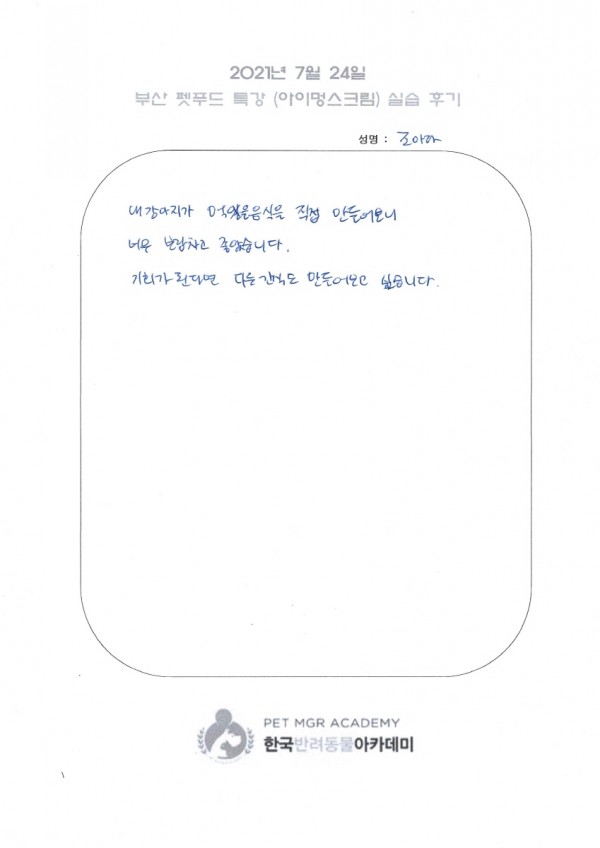 2021년 7월 24일
부산 펫푸드 특강 (아이멍스크림) 실습 후기
성명 : 조아라
내강아지가 먹을음식을 직접 만들어보니
너무 보람차고 좋았습니다.
기회가 된다면 다른간식도 만들어보고 싶습니다.
PET MGR ACADEMY
한국반려동물아카데미